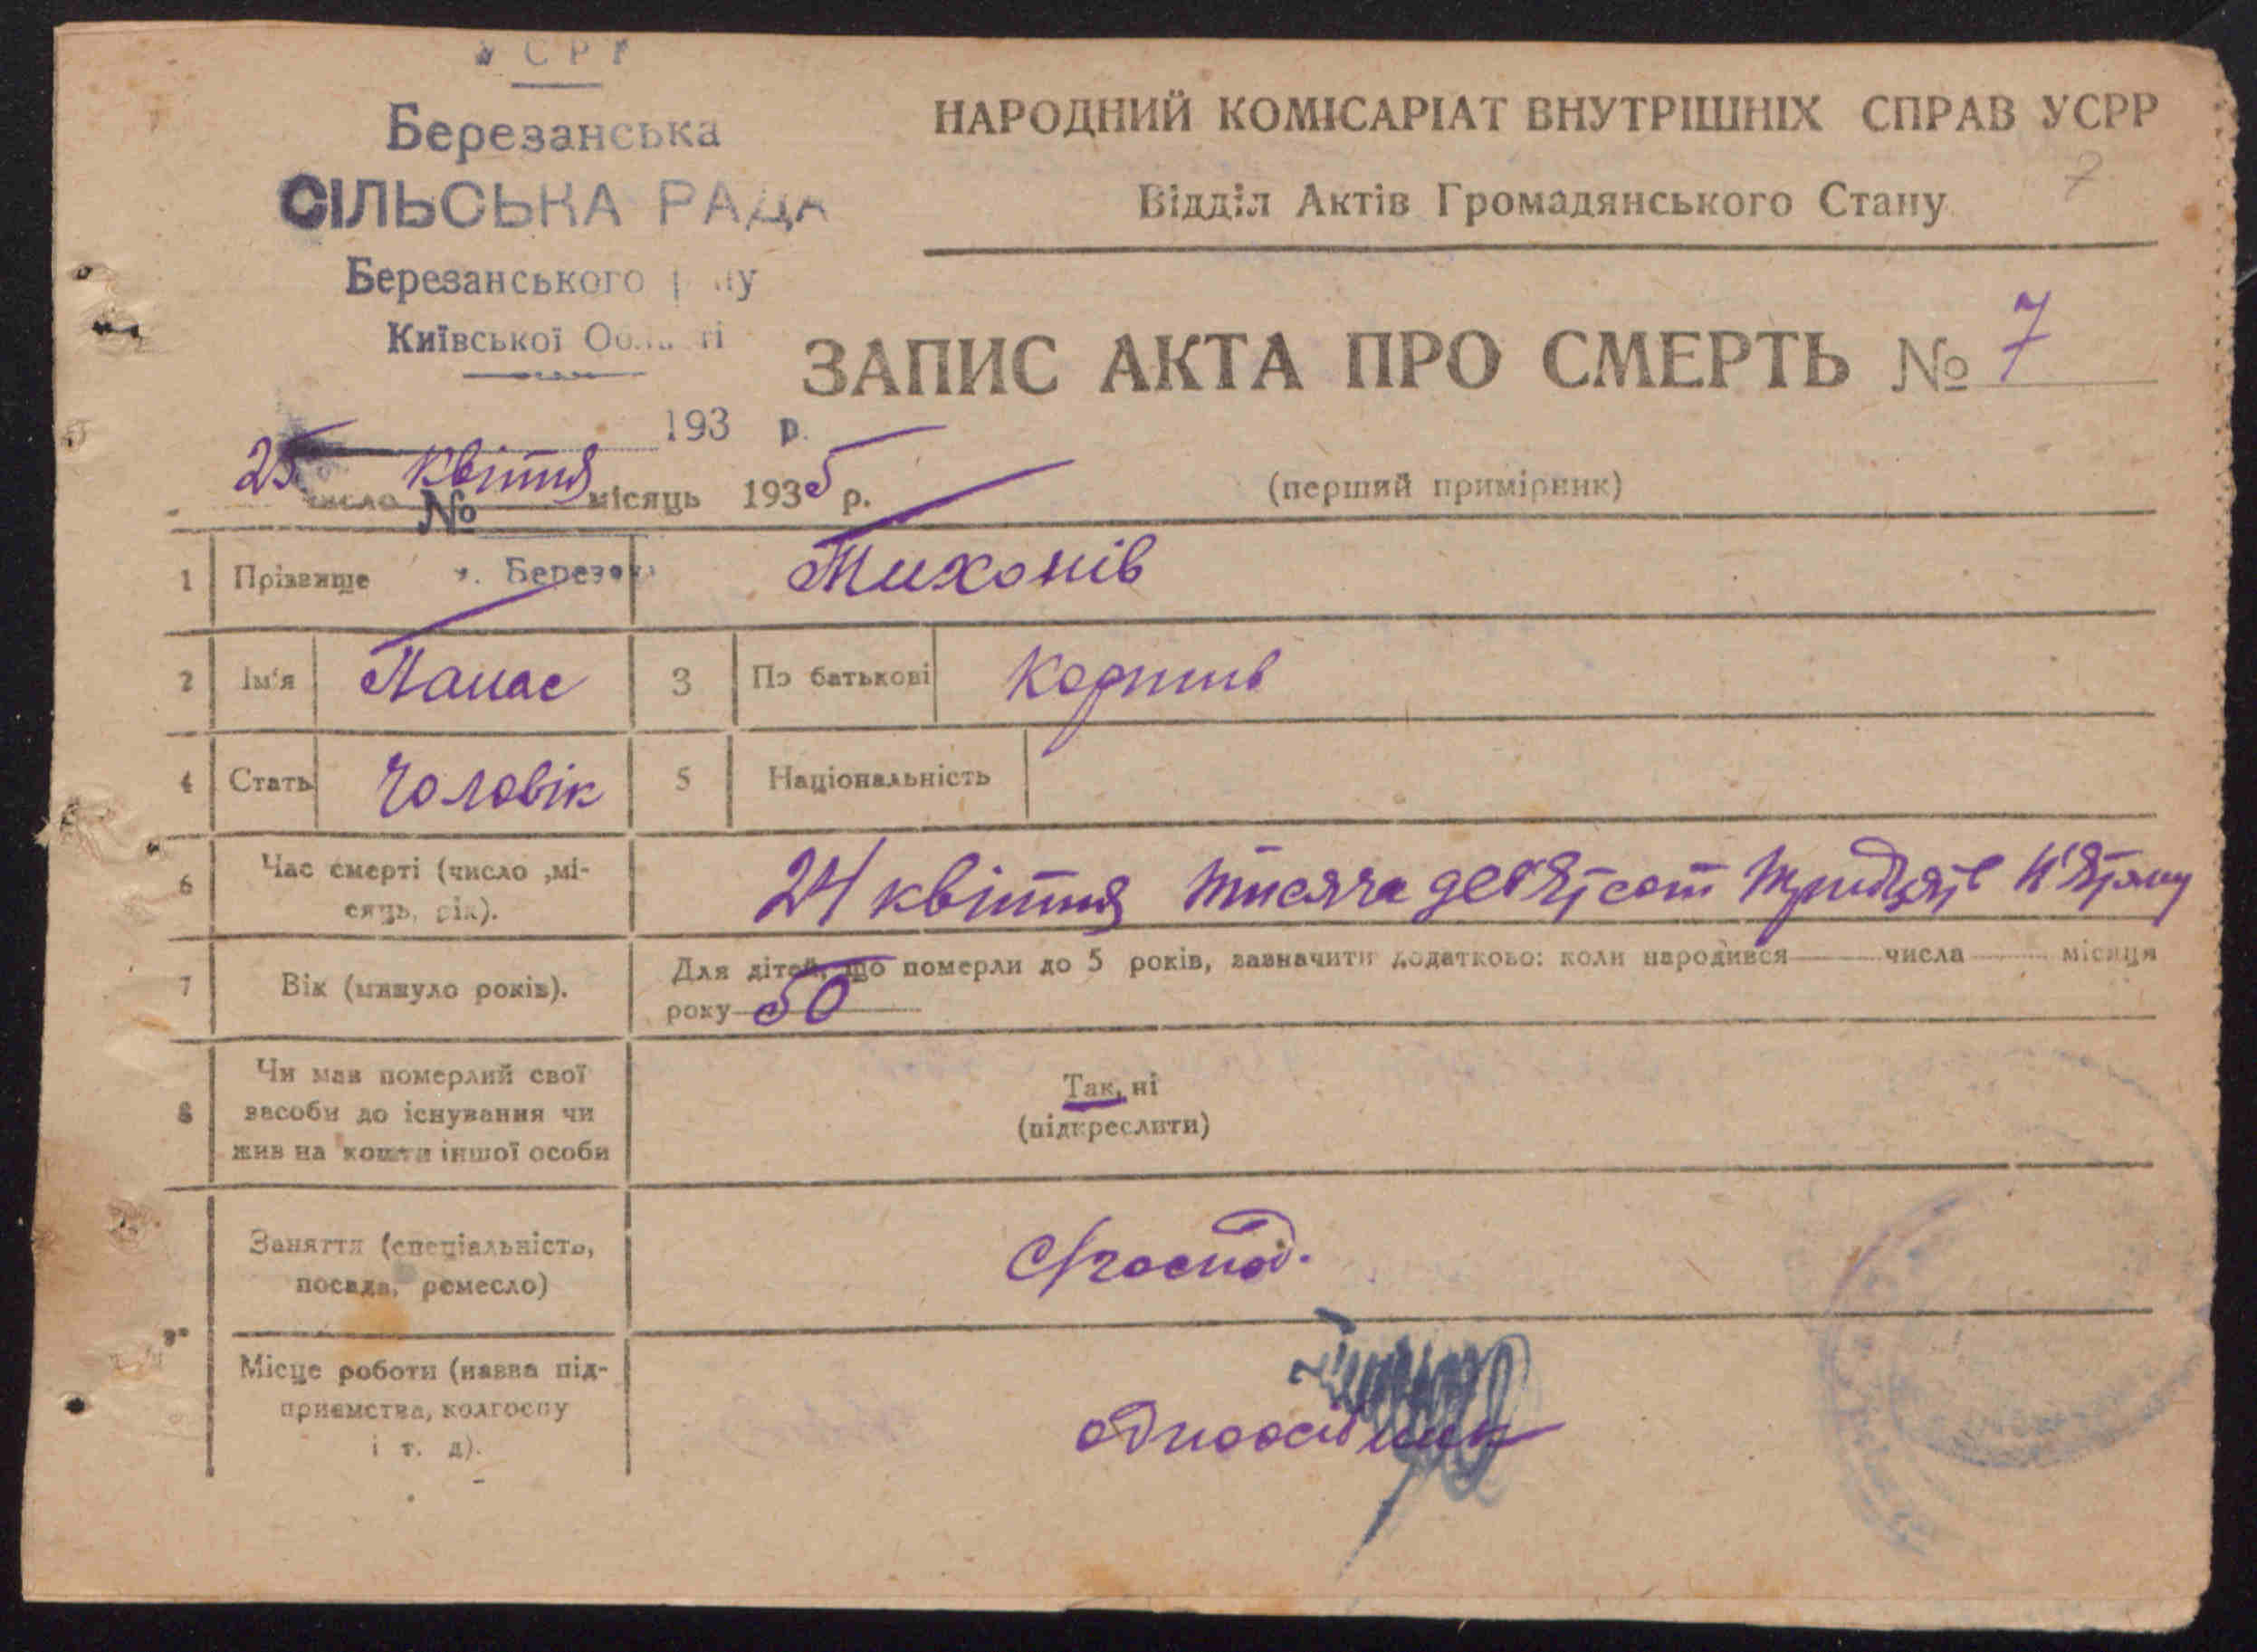 УСРР
Березанська
СІЛЬСЬКА РАДА
Березанського р-ну
Київської Області
193 р.
№
м. Березань
НАРОДНИЙ КОМІСАРІАТ ВНУТРІШНІХ СПРАВ УСРР
7
Відділ Актів Громадянського Стану
ЗАПИС АКТА ПРО СМЕРТЬ № 7
25 число квітня місяць 1935 р.
(перший примірник)
1 Прізвище Тихонів
2 Ім'я Панас 3 По батькові Карпів
4 Стать Чоловік 5 Національність
6 Час смерті (число ,мі-
сяць, рік).
24 квітня тисяча девятсот тридцять п'ятому
7 Вік (минуло років).
Для дітей, що померли до 5 років, зазначити додатково: коли народився числа місяця
року 50
8 Чи мав померлий свої
засоби до існування чи
жив на кошти іншої особи
Так, ні
(підкреслити)
9
Заняття (спеціальність,
посада, ремесло)
С/господ.
Місце роботи (назва під-
приємства, колгоспу
і т. д).
одноосібник